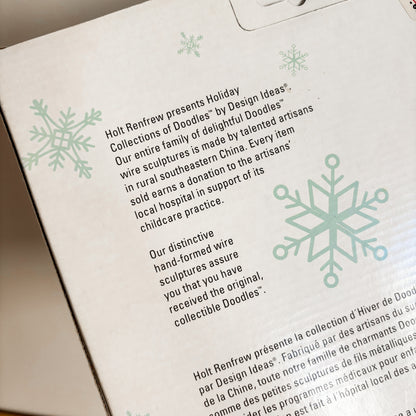 Holt Renfrew presents Holiday
Collections of Doodles™ by Design Ideas®.
Our entire family of delightful Doodles™
wire sculptures is made by talented artisans
in rural southeastern China. Every item
sold earns a donation to the artisans'
local hospital in support of its
childcare practice.
Our distinctive
hand-formed wire
sculptures assure
you that you have
received the original,
collectible Doodles™.
Holt Renfrew présente la collection d'Hiver de Dood
par Design Ideas®. Fabriqué par des artisans du su
de la Chine, toute notre famille de charmants Doo
comme des petites sculptures de fils métalliques
les programmes médicaux pour enfa
est fait à l'hôpital local des a